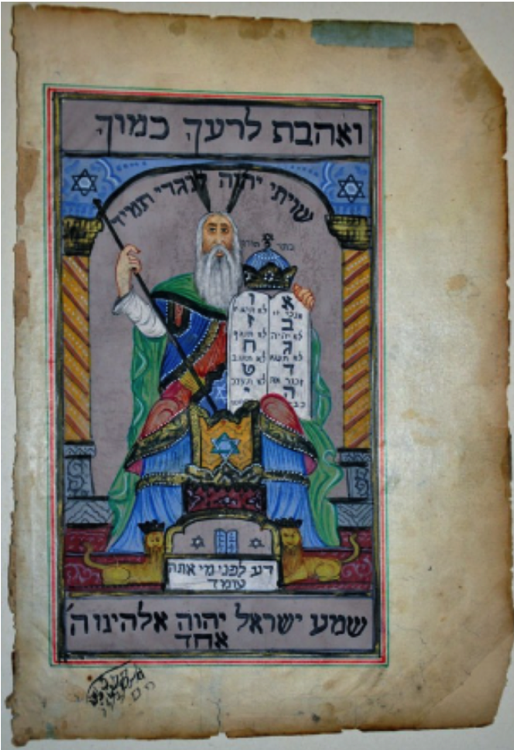 ואהבת לרעך כמוך
שויתי יהוה לנגדי תמיד
כתר תורה
א
אנכי יי
ב
לא יהיה
ג
לא תשא
ד
זכור את
ה
כבד
ו
לא תרצח
ז
לא תנאף
ח
לא תגנב
ט
לא תענה
י
דע לפני מי אתה
עומד
שמע ישראל יהוה אלהינו ה'
אחד